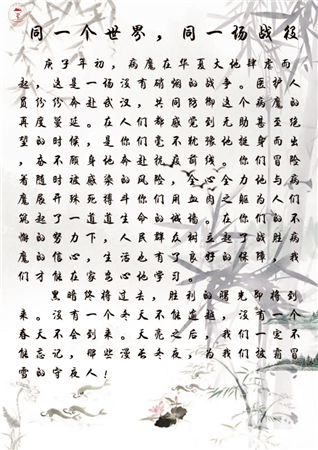 同一个世界，同一场战役
庚子年初，病魔在华夏大地肆虐而
起，这是一场没有硝烟的战争。医护人
员纷纷奔赴武汉，共同防御这个病魔的
再度蔓延。在人们都感觉到无助甚至绝
望的时候，是你们毫不犹豫地挺身而出
，奋不顾身地奔赴抗疫前线。你们冒险
着随时被感染的风险，全心全力地与病
魔展开殊死搏斗你们用血肉之躯为人们
筑起了一道道生命的城墙。在你们的不
懈的努力下，人民群众树立起了战胜病
魔的信心，生活也有了良好的保障，我
们才能在家安心地学习。
黑暗终将过去，胜利的曙光即将到
来。没有一个冬天不能逾越，没有一个
春天不会到来。天亮之后，我们一定不
能忘记，那些漫长冬夜，为我们披霜冒
雪的守夜人！